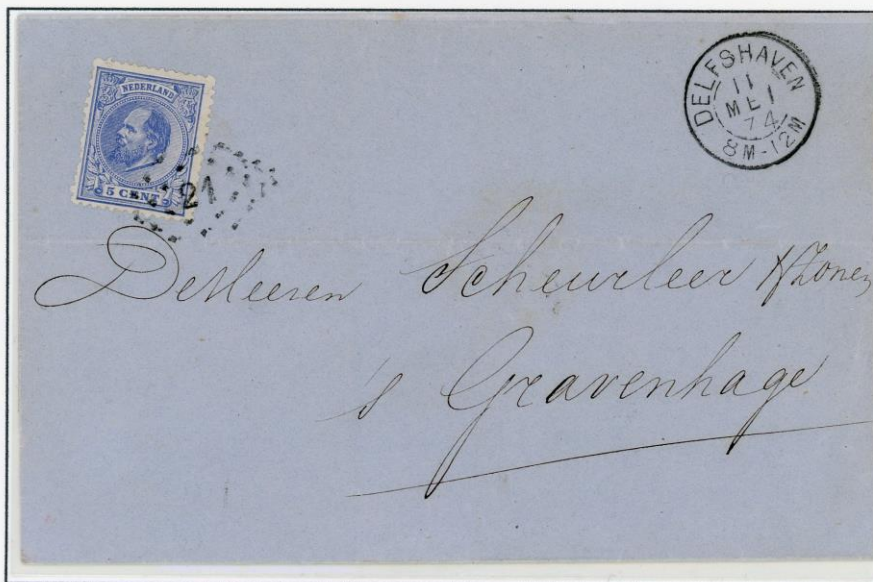 NEDERLAND
5 CENT
21
DELFSHAVEN
11
MEI
74
8M-12M
De Heeren Scheurleer & Zonen
's Gravenhage